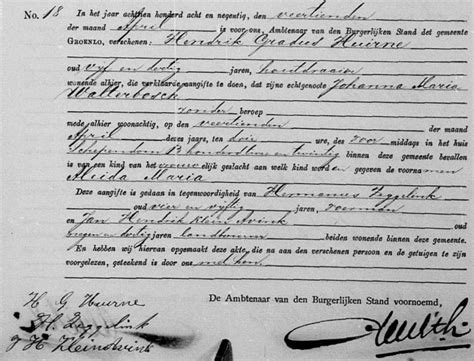 No. 18 In het jaar achttien honderd acht en negentig, den veertienden
der maand April is voor ons, Ambtenaar van den Burgerlijken Stand der gemeente
GROENLO, verschenen: Hendrik Gradus Huirne
oud vijf en dertig jaren, houtdraaier
wonende alhier, die verklaarde aangifte te doen, dat zijne echtgenoot Johanna Maria
Wallerbosch
zonder beroep
mede alhier woonachtig, op den veertienden der maand
April dezes jaars, ten drie ure, des voor middags in het huis
binnen deze gemeente bevallen
is van een kind van het vrouwelijk geslacht aan welk kind worden gegeven de voornamen
Aleida Maria
Deze aangifte is gedaan in tegenwoordigheid van Hermanus Zeggelink
oud vier en vijftig jaren, voerman
en Jan Hendrik Klein Avink
oud negen en dertig jaren, landbouwer beiden wonende binnen deze gemeente.
En hebben wij hiervan opgemaakt deze akte, die na aan den verschenen persoon en de getuigen te zijn
voorgelezen, geteekend is door ons met hen.
De Ambtenaar van den Burgerlijken Stand voornoemd,
H G Huirne
H. Zeggelink